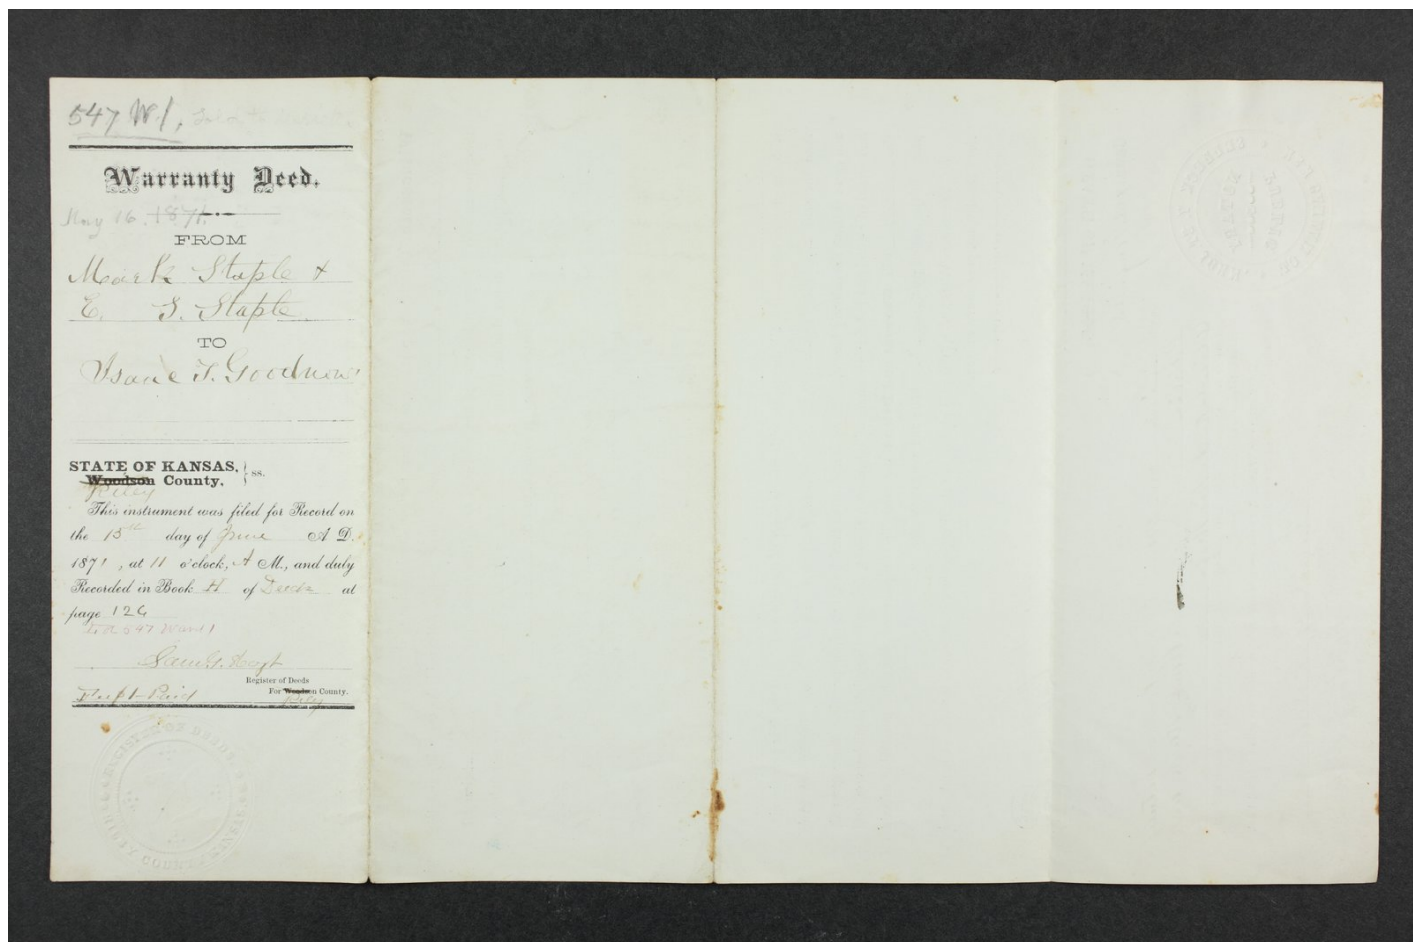 547 W.1,
Warranty Deed.
May 16. 1871.
FROM
Mark Staple &
E. S. Staple
TO
Isaac T. Goodnow
STATE OF KANSAS, } ss.
Woodson County.
Riley
This instrument was filed for Record on
the 15th day of June A D.
1871, at 11 o'clock, A M., and duly
Recorded in Book H of Deeds at
page 126
Lot 547 Ward 1
Saml. G. Hoyt
Register of Deeds
For Woodson County.
Riley
Paid
REGISTER OF DEEDS
COUNTY KANSAS